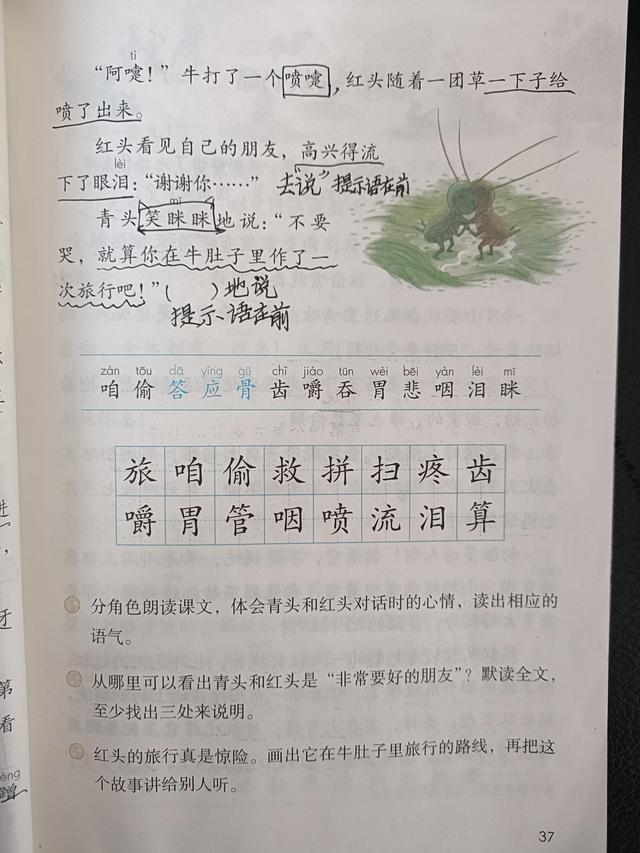 tì
“阿嚏！”牛打了一个喷嚏，红头随着一团草一下子给
喷了出来。
红头看见自己的朋友，高兴得流
lèi
下了眼泪：“谢谢你……” 去“说” 提示语在前
mī
青头笑眯眯地说：“不要
哭，就算你在牛肚子里作了一
次旅行吧！”（ ）地说
提示语在前
zán tōu dā yìng gū chǐ jiáo tūn wèi bēi yàn lèi mī
咱 偷 答 应 骨 齿 嚼 吞 胃 悲 咽 泪 眯
旅 咱 偷 救 拼 扫 疼 齿
嚼 胃 管 咽 喷 流 泪 算
分角色朗读课文，体会青头和红头对话时的心情，读出相应的
语气。
从哪里可以看出青头和红头是“非常要好的朋友”？默读全文，
至少找出三处来说明。
红头的旅行真是惊险。画出它在牛肚子里旅行的路线，再把这
个故事讲给别人听。
37
进
，
牙
第
看
èng
蹭